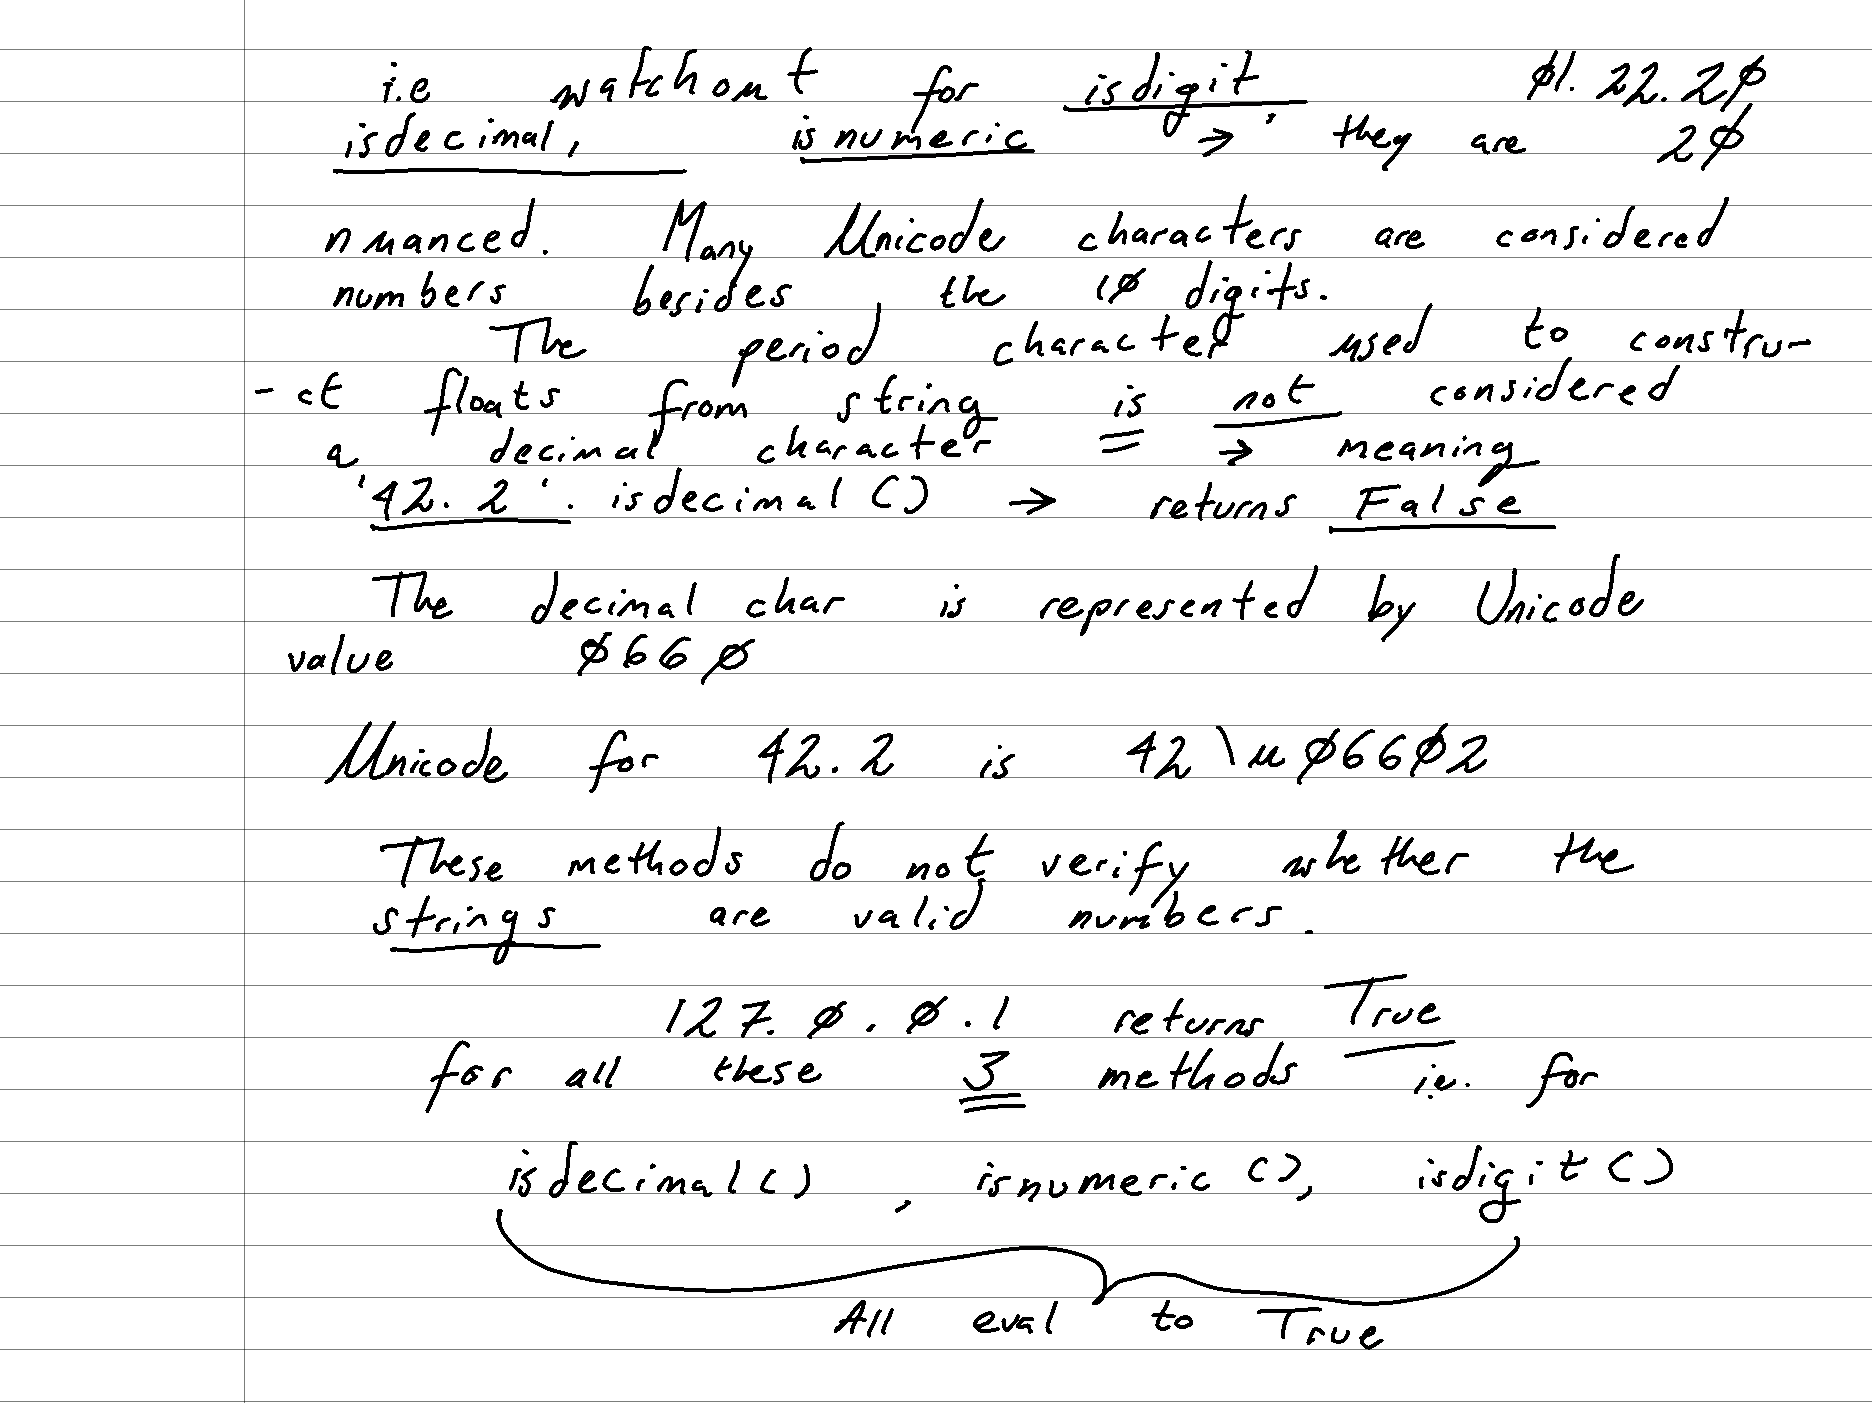 i.e watchout for isdigit, Ø1.22.2Ø
isdecimal, isnumeric → they are 2Ø
nuanced. Many Unicode characters are considered
numbers besides the 1Ø digits.
The period character used to constru-
-ct floats from string is not considered
a decimal character → meaning
'42.2'.isdecimal() → returns False
The decimal char is represented by Unicode
value Ø66Ø
Unicode for 42.2 is 42\uØ66Ø2
These methods do not verify whether the
strings are valid numbers.
127.Ø.Ø.1 returns True
for all these 3 methods i.e. for
isdecimal(), isnumeric(), isdigit()
All eval to True